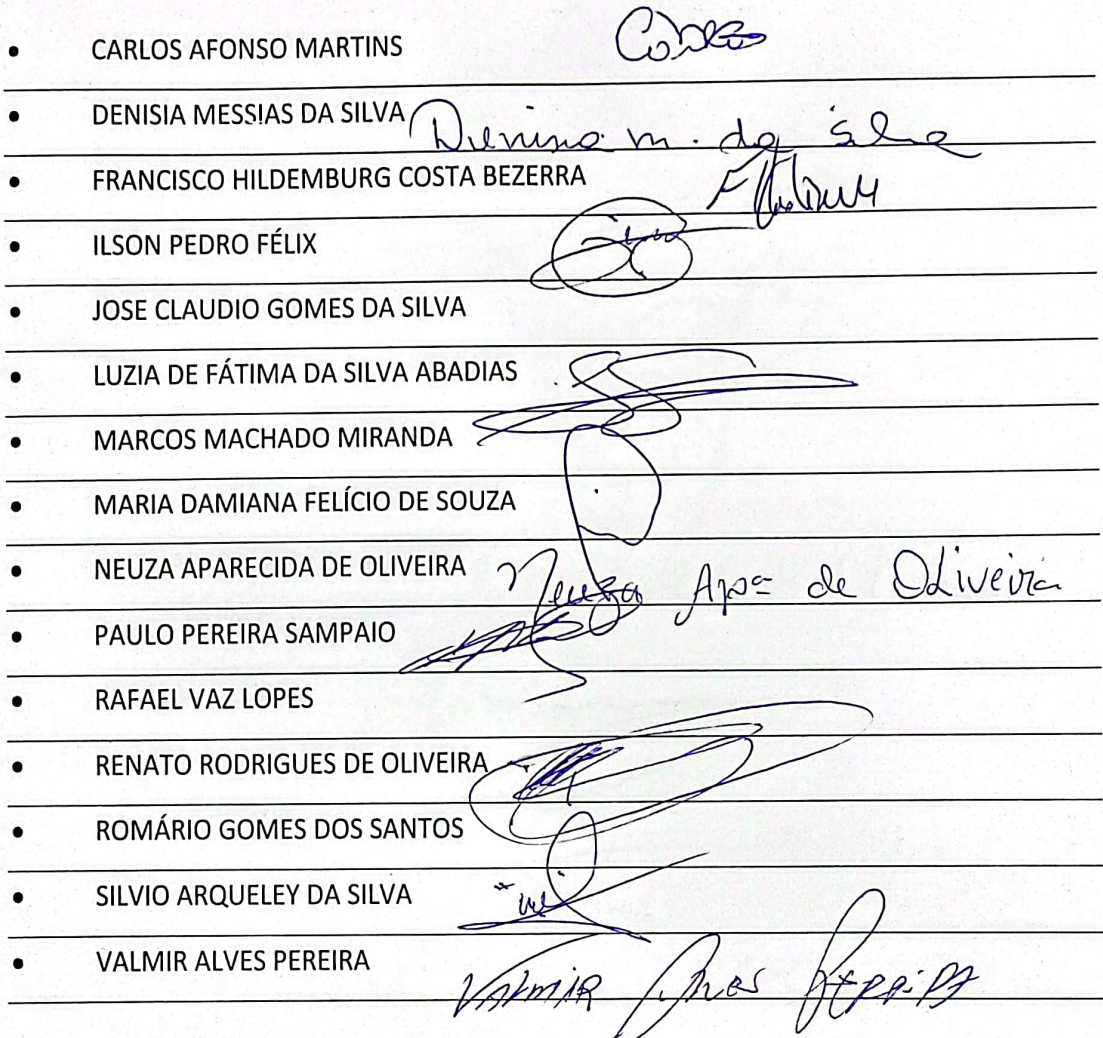 • CARLOS AFONSO MARTINS
• DENISIA MESSIAS DA SILVA m. da
• FRANCISCO HILDEMBURG COSTA BEZERRA
• ILSON PEDRO FÉLIX
• JOSE CLAUDIO GOMES DA SILVA
• LUZIA DE FÁTIMA DA SILVA ABADIAS
• MARCOS MACHADO MIRANDA
• MARIA DAMIANA FELÍCIO DE SOUZA
• NEUZA APARECIDA DE OLIVEIRA Neuza Apª de Oliveira
• PAULO PEREIRA SAMPAIO
• RAFAEL VAZ LOPES
• RENATO RODRIGUES DE OLIVEIRA
• ROMÁRIO GOMES DOS SANTOS
• SILVIO ARQUELEY DA SILVA
• VALMIR ALVES PEREIRA Valmir Alves Pereira